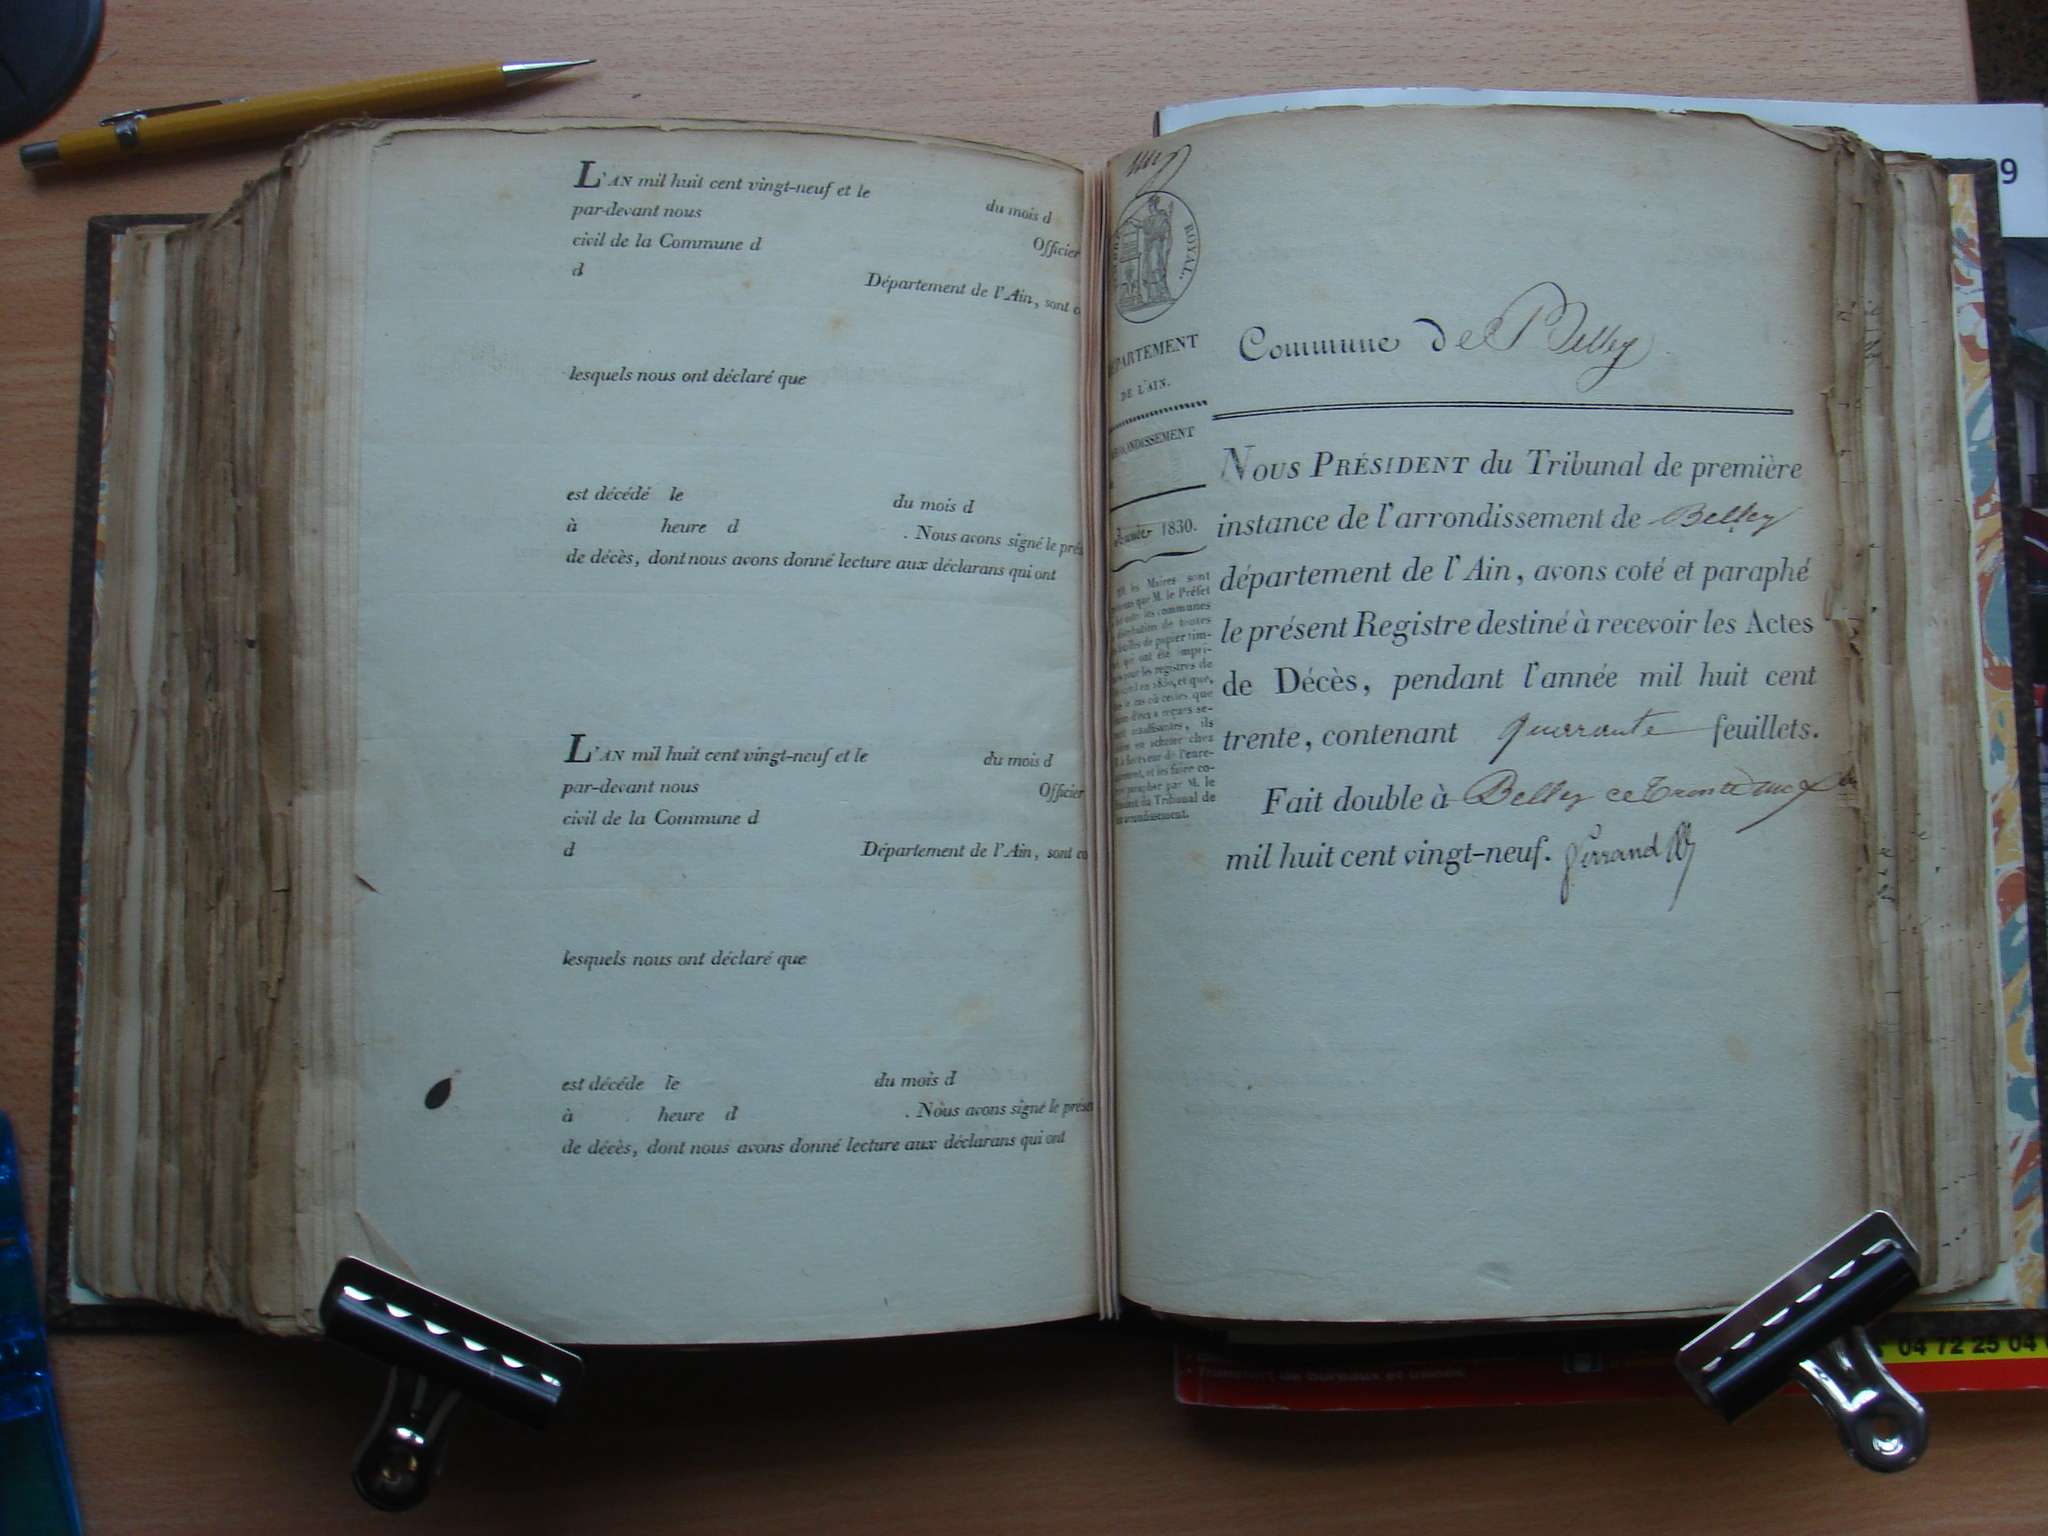 L'AN mil huit cent vingt-neuf et le du mois d
par-devant nous Officier
civil de la Commune d
d Département de l'Ain, sont
lesquels nous ont déclaré que
est décédé le du mois d
à heure d . Nous avons signé le
de décès, dont nous avons donné lecture aux déclarans qui ont
L'AN mil huit cent vingt-neuf et le du mois d
par-devant nous Officier
civil de la Commune d
d Département de l'Ain, sont
lesquels nous ont déclaré que
est décéde le du mois d
à heure d . Nous avons signé le
de décès, dont nous avons donné lecture aux déclarans qui ont
ROYAL.
DE L'AIN.
1830.
les Maires sont
que M. le Préfet
les communes
de toutes
de papier tim-
qui ont été impri-
pour les registres de
en 1830, et que,
le cas où celles que
se-
insuffisantes, ils
en acheter chez
de l'enre-
et les faire co-
par M. le
du Tribunal de
Commune de Belley
NOUS PRÉSIDENT du Tribunal de première
instance de l'arrondissement de Belley
département de l'Ain, avons coté et paraphé
le présent Registre destiné à recevoir les Actes
de Décès, pendant l'année mil huit cent
trente, contenant quarante feuillets.
Fait double à Belley ce
mil huit cent vingt-neuf.
9
04 72 25 04
Transfert de bureaux et usines